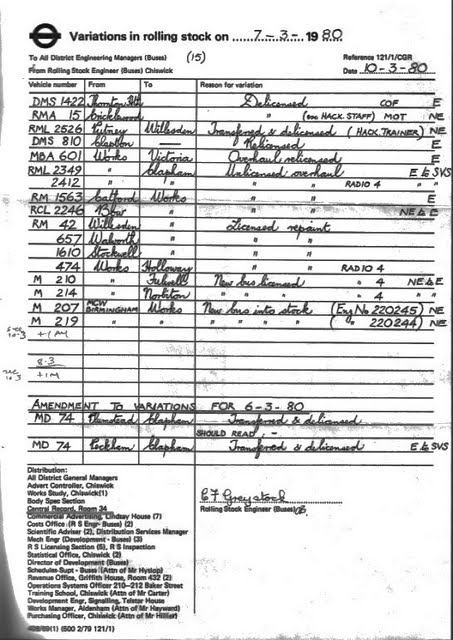 Variations in rolling stock on 7-3- 1980
To All District Engineering Managers (Buses) (15) Reference 121/1/CGR
From Rolling Stock Engineer (Buses) Chiswick Date 10-3-80
Vehicle number From To Reason for variation
DMS 1422 Thornton Hth Delicensed COF E
RMA 15 Cricklewood " (ex HACK. STAFF) MOT NE
RML 2526 Putney Willesden Transferred & delicensed (HACK.TRAINER) NE
DMS 810 Clapton — Relicensed E
MBA 601 Works Victoria Overhaul relicensed E
RML 2349 " Clapham Unlicensed overhaul E to SVS
2412 " " " " RADIO 4 "
RM 1563 Catford Works " " E
RCL 2246 B'bw " " " NE to E
RM 42 Willesden " Licensed repaint
657 Walworth " " "
1610 Stockwell " " "
474 Works Holloway " " RADIO 4
M 210 " Fulwell New bus licensed " 4 NE to E
M 214 " Norbiton " " " " 4 "
M 207 MCW BIRMINGHAM Works New bus into stock (Eng No 220245) NE
M 219 " " " " " " (" 220244) NE
+1M
8.3
+1M
AMENDMENT TO VARIATIONS FOR 6-3-80
MD 74 Plumstead Clapham Transferred & delicensed
SHOULD READ :-
MD 74 Peckham Clapham Transferred & delicensed E to SVS
Distribution:
All District General Managers
Advert Controller, Chiswick
Works Study, Chiswick(1)
Body Spec Section
Central Record, Room 34
Commercial Advertising, Lindsay House (7)
Costs Office (R S Engr- Buses) (2)
Scientific Adviser (2), Distribution Services Manager
Mech Engr (Development - Buses) (3)
R S Licensing Section (5), R S Inspection
Statistical Office, Chiswick (2)
Director of Development (Buses)
Schedules Supt - Buses (Attn of Mr Hyslop)
Revenue Office, Griffith House, Room 432 (2)
Operations Systems Officer 210–212 Baker Street
Training School, Chiswick (Attn of Mr Carter)
Development Engr, Signalling, Telstar House
Works Manager, Aldenham (Attn of Mr Hayward)
Purchasing Officer, Chiswick (Attn of Mr Hillier)
C F Greystock
Rolling Stock Engineer (Buses)
(1) (500 2/79 121/1)